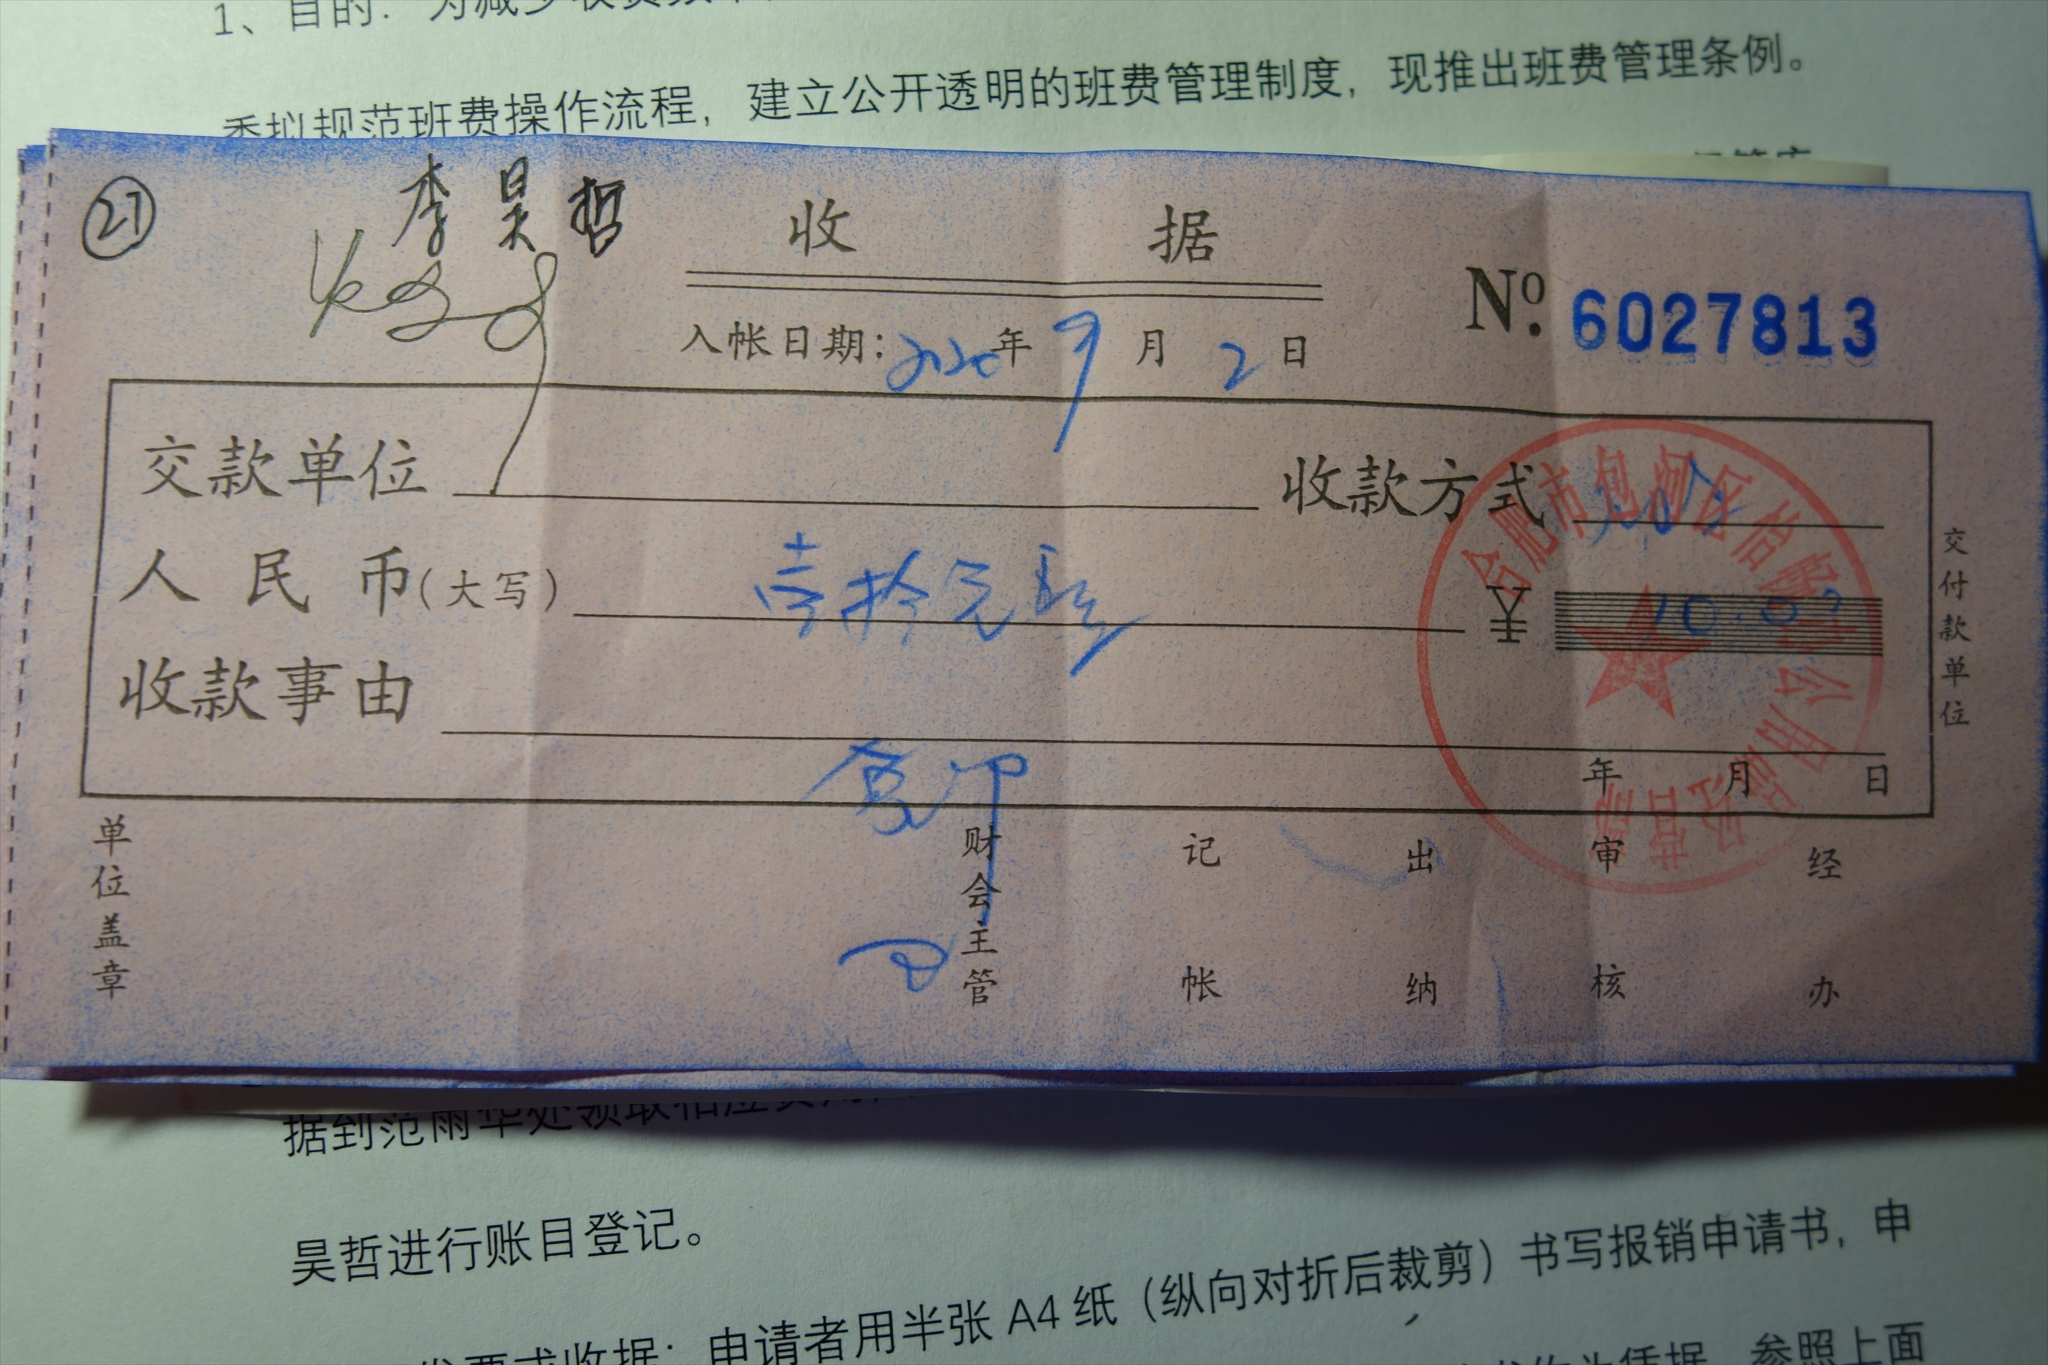 1、目的：为减少收费
规范班费操作流程，建立公开透明的班费管理制度，现推出班费管理条例。
21
李昊哲
收据
No. 6027813
入帐日期：2020年9月2日
交款单位
收款方式
人民币(大写) 壹拾元整
¥ 10.00
收款事由
复印
年月日
交付款单位
单位盖章
财会主管
记帐
出纳
审核
经办
合肥市包河区
公用
据到范雨华处领取相应
昊哲进行账目登记。
发票或收据：申请者用半张 A4 纸（纵向对折后裁剪）书写报销申请书，申
作为凭据，参照上面